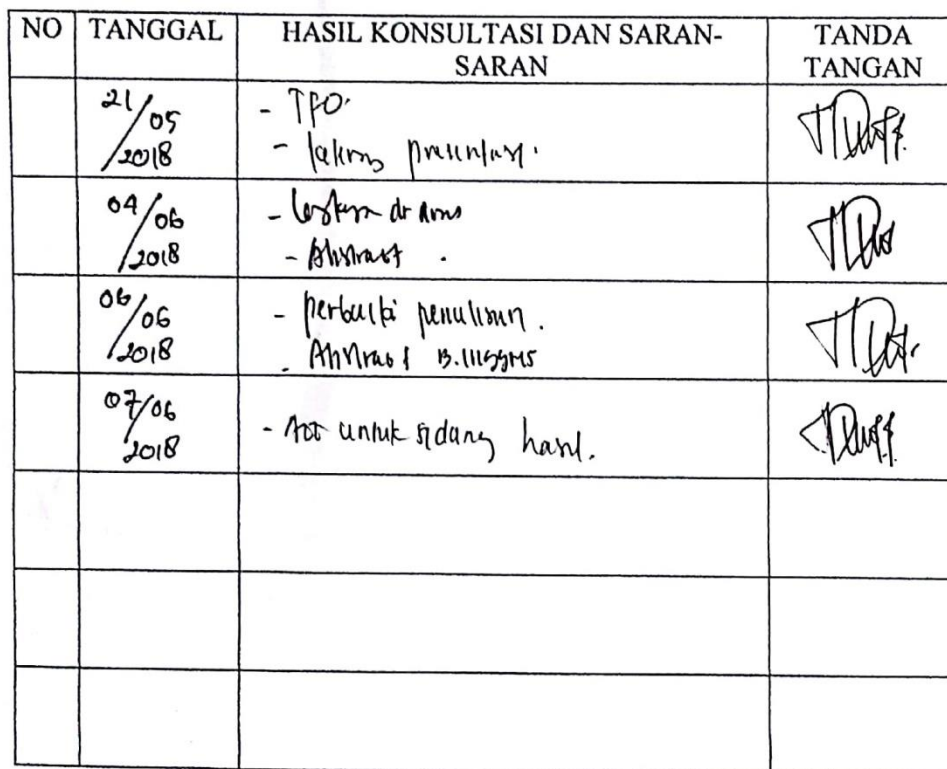 NO TANGGAL HASIL KONSULTASI DAN SARAN- TANDA
SARAN TANGAN
21/05/2018 - TPO.
-
04/06/2018 -
- Abstract .
06/06/2018 - perbaiki penulisan.
- Abstract B. Inggris
07/06/2018 - Acc untuk sidang hasil.